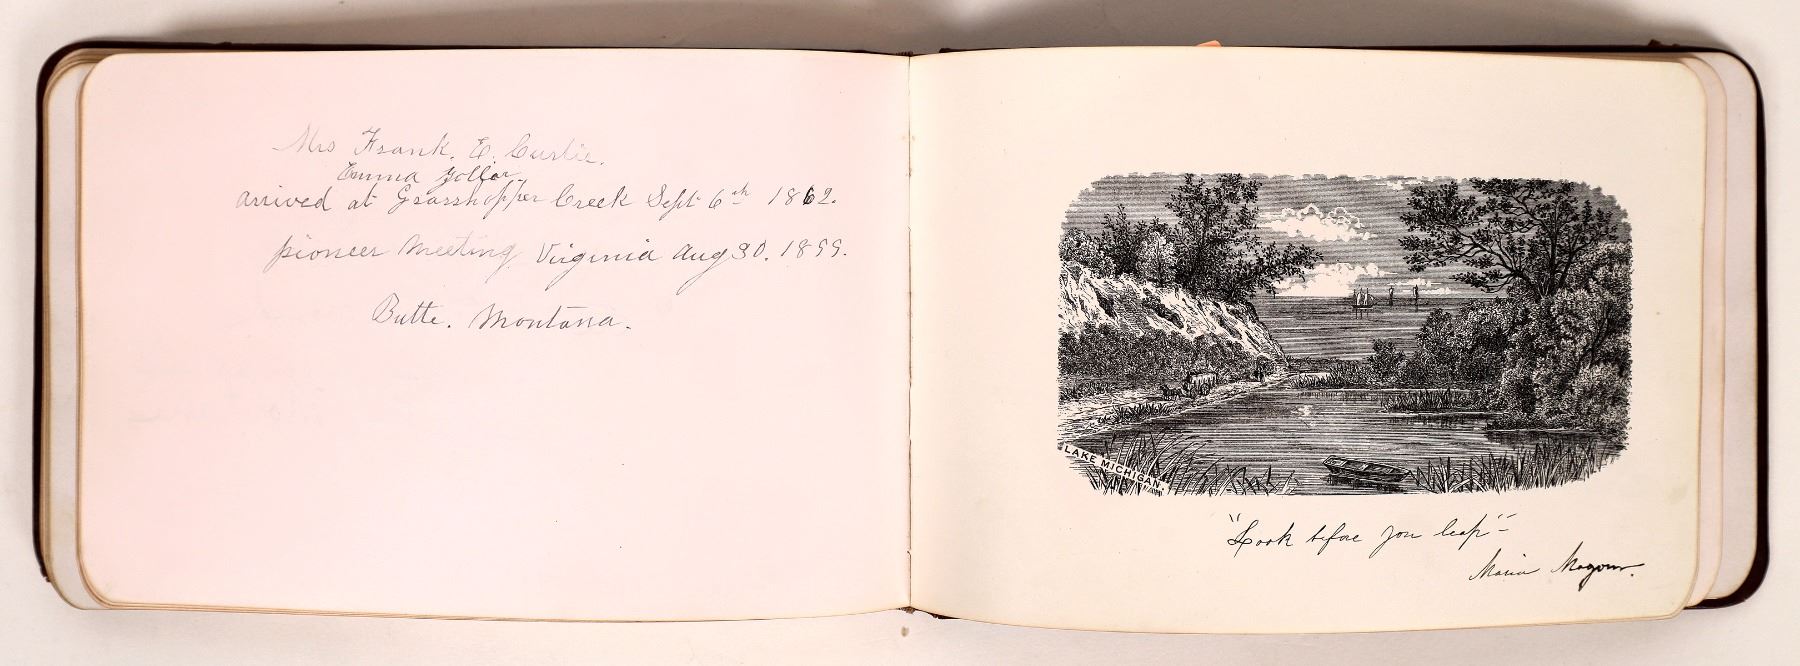 Mrs Frank. E. Curtis.
Emma Zoller
arrived at Grasshopper Creek Sept 6th 1862.
pioneer meeting Virginia Aug 30. 1899.
Butte. Montana.
LAKE MICHIGAN.
"Look before you leap"
Maria